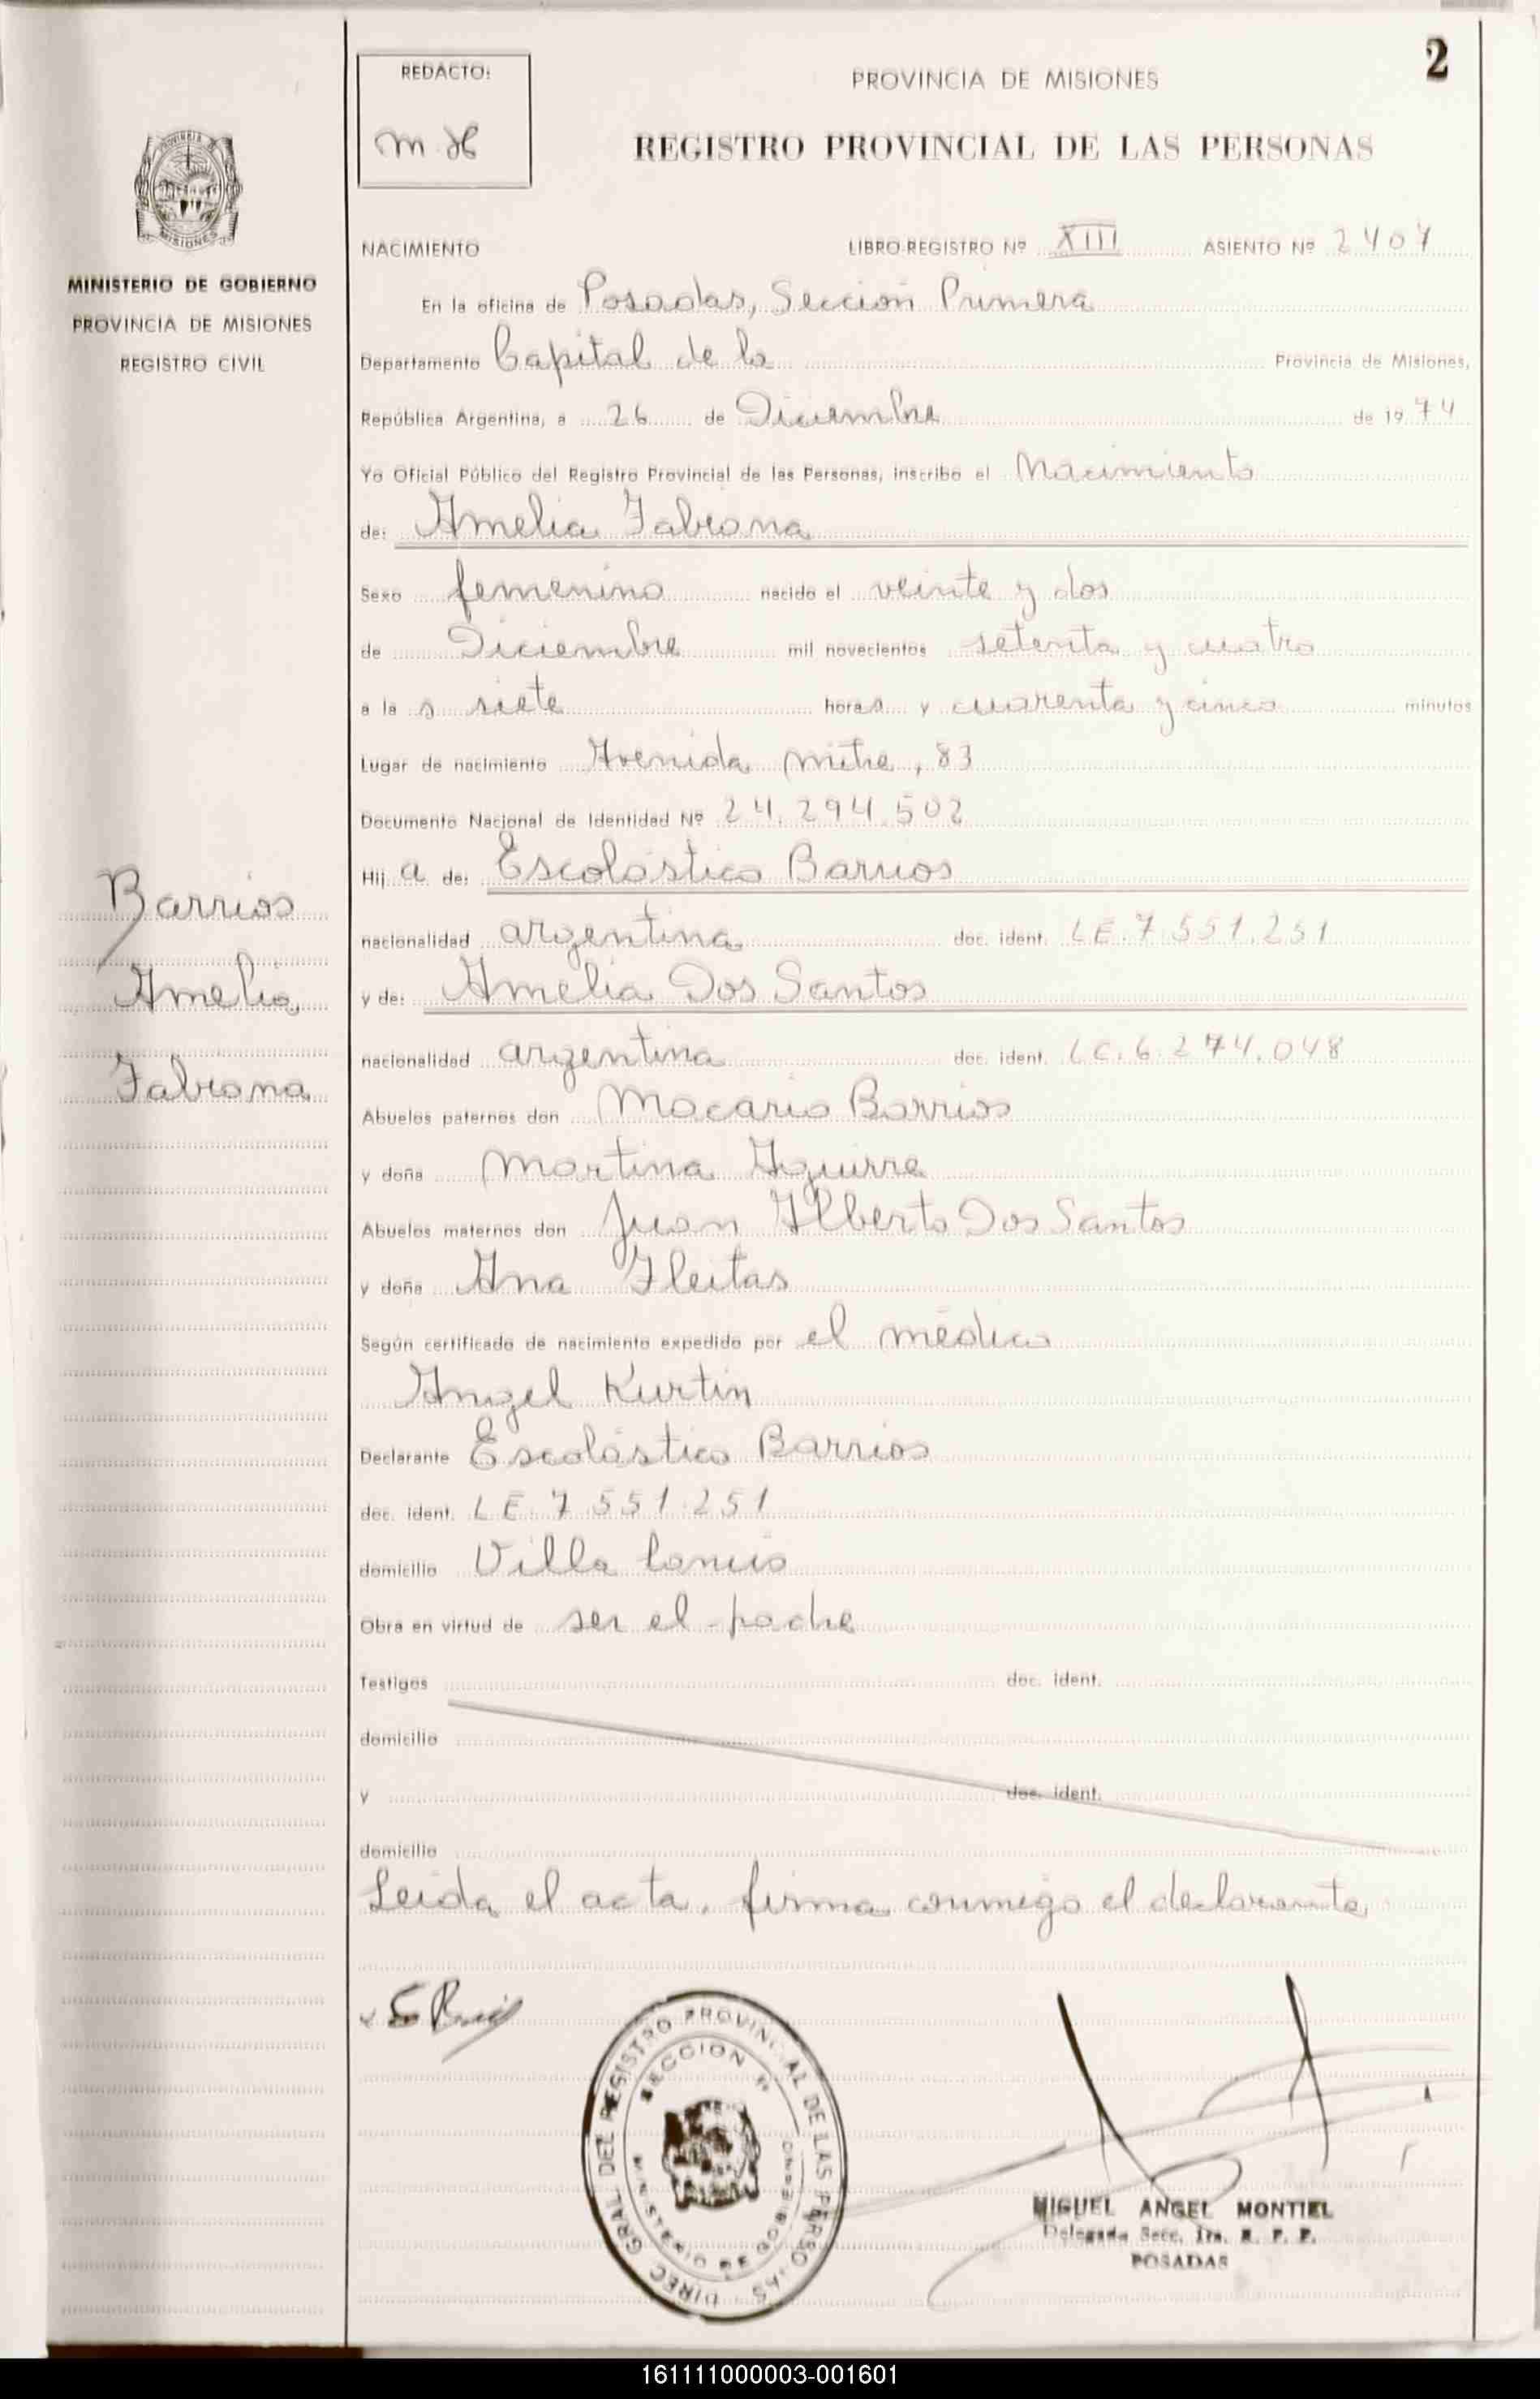 2
REDACTO:
M.H
PROVINCIA DE MISIONES
REGISTRO PROVINCIAL DE LAS PERSONAS
MISIONES
MINISTERIO DE GOBIERNO
PROVINCIA DE MISIONES
REGISTRO CIVIL
Barrios
Amelia
Fabiana
NACIMIENTO LIBRO-REGISTRO Nº XIII ASIENTO Nº 2407
En la oficina de Posadas, Sección Primera
Departamento Capital de la Provincia de Misiones,
República Argentina, a 26 de Diciembre de 1974
Yo Oficial Público del Registro Provincial de las Personas, inscribo el Nacimiento
de: Amelia Fabiana
Sexo femenino nacido el veinte y dos
de Diciembre mil novecientos setenta y cuatro
a la s siete horas y cuarenta y cinco minutos
Lugar de nacimiento Avenida Mitre, 83
Documento Nacional de Identidad Nº 24.294.502
Hij a de: Escolástico Barrios
nacionalidad argentina doc. ident. LE.7.551.251
y de: Amelia Dos Santos
nacionalidad argentina doc. ident. LC.6.274.048
Abuelos paternos don Macario Barrios
y doña Martina Aguirre
Abuelos maternos don Juan Alberto Dos Santos
y doña Ana Fleitas
Según certificado de nacimiento expedido por el médico
Angel Kurtin
Declarante Escolástico Barrios
doc. ident. LE.7.551.251
domicilio Villa Lanús
Obra en virtud de ser el padre
Testigos doc. ident.
domicilio
y doc. ident.
domicilio
Leida el acta, firma conmigo el declarante
DIREC GRAL DEL REGISTRO PROVINCIAL DE LAS PERSONAS
SECCION 1ª
MINISTERIO DE GOBIERNO
MIGUEL ANGEL MONTIEL
Delegado Secc. 1ra. R. P. P.
POSADAS
161111000003-001601